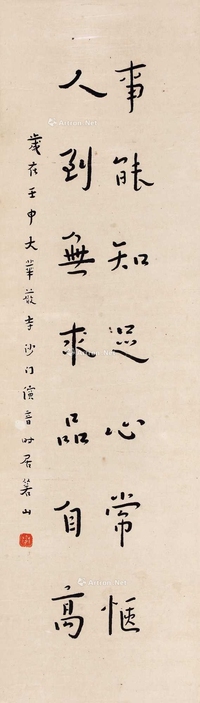 事能知足心常愜
人到無求品自高
歲在壬申大華嚴寺沙門演音時居山